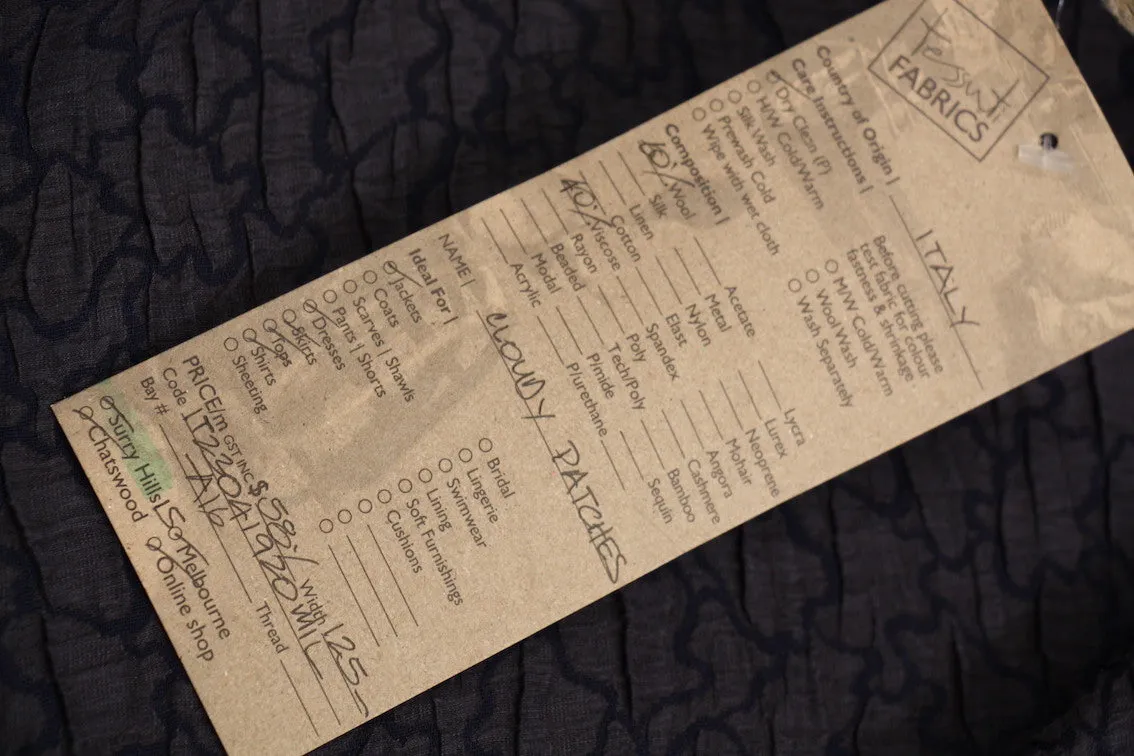 Tessuti
FABRICS
Country of Origin | ITALY
Care Instructions |
Dry Clean (P)
H/W Cold/Warm
Silk Wash
Prewash Cold
Wipe with wet cloth
Before cutting please
test fabric for colour
fastness & shrinkage
M/W Cold/Warm
Wool Wash
Wash Separately
Composition |
60% Wool
Silk
Linen
Cotton
40% Viscose
Rayon
Beaded
Modal
Acrylic
Acetate
Metal
Nylon
Elast
Spandex
Poly
Tech/Poly
P/mide
P/urethane
Lycra
Lurex
Neoprene
Mohair
Angora
Cashmere
Bamboo
Sequin
NAME | CLOUDY PATCHES
Ideal For |
Jackets
Coats
Scarves | Shawls
Pants | Shorts
Dresses
Skirts
Tops
Shirts
Sheeting
Bridal
Lingerie
Swimwear
Lining
Soft Furnishings
Cushions
PRICE/m GST INC $ 58 Width 125
Code IT22041920WIL
Bay # A16 Thread
Surry Hills Melbourne
Chatswood Online shop